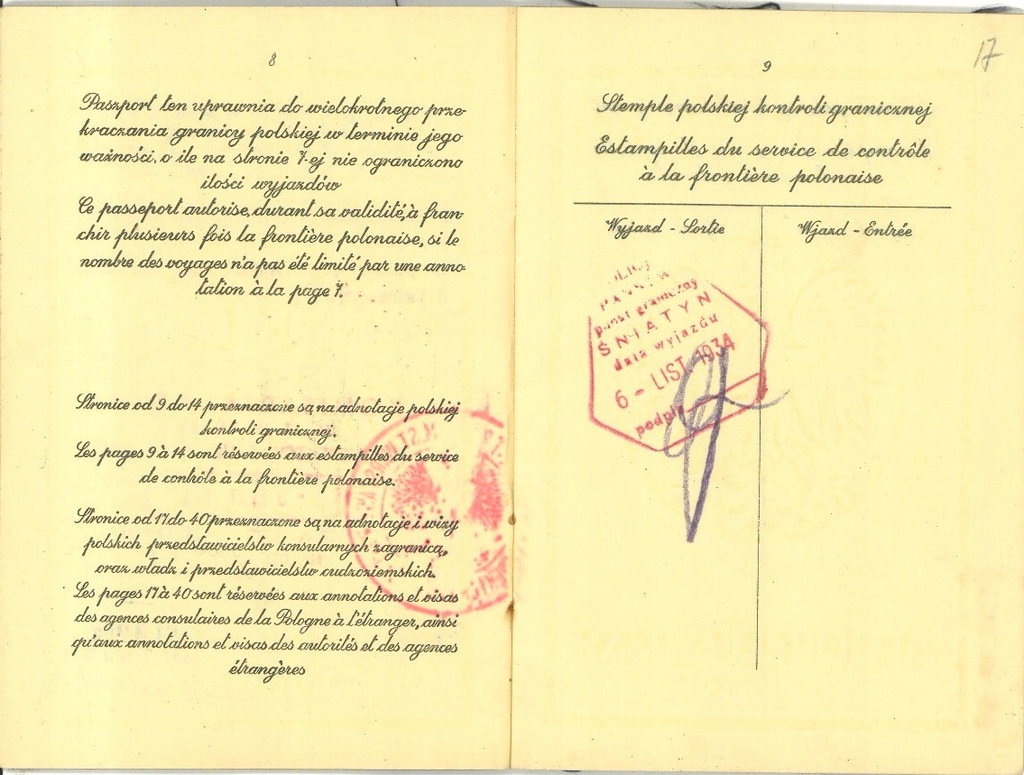 8
Paszport ten uprawnia do wielokrotnego prze-
kraczania granicy polskiej w terminie jego
ważności, o ile na stronie 7-ej nie ograniczono
ilości wyjazdów
Ce passeport autorise, durant sa validité, à fran-
chir plusieurs fois la frontière polonaise, si le
nombre des voyages n'a pas été limité par une anno-
tation à la page 7.
Stronice od 9 do 14 przeznaczone są na adnotacje polskiej
kontroli granicznej.
Les pages 9 à 14 sont réservées aux estampilles du service
de contrôle à la frontière polonaise.
Stronice od 17 do 40 przeznaczone są na adnotacje i wizy
polskich przedstawicielstw konsularnych zagranicą,
oraz władz i przedstawicielstw cudzoziemskich.
Les pages 17 à 40 sont réservées aux annotations et visas
des agences consulaires de la Pologne à l'étranger, ainsi
qu'aux annotations et visas des autorités et des agences
étrangères
9
17
Stemple polskiej kontroli granicznej
Estampilles du service de contrôle
à la frontière polonaise
Wyjazd - Sortie
Wjazd - Entrée
punkt graniczny
ŚNIATYN
data wyjazdu
6 - LIST. 1934
podpis